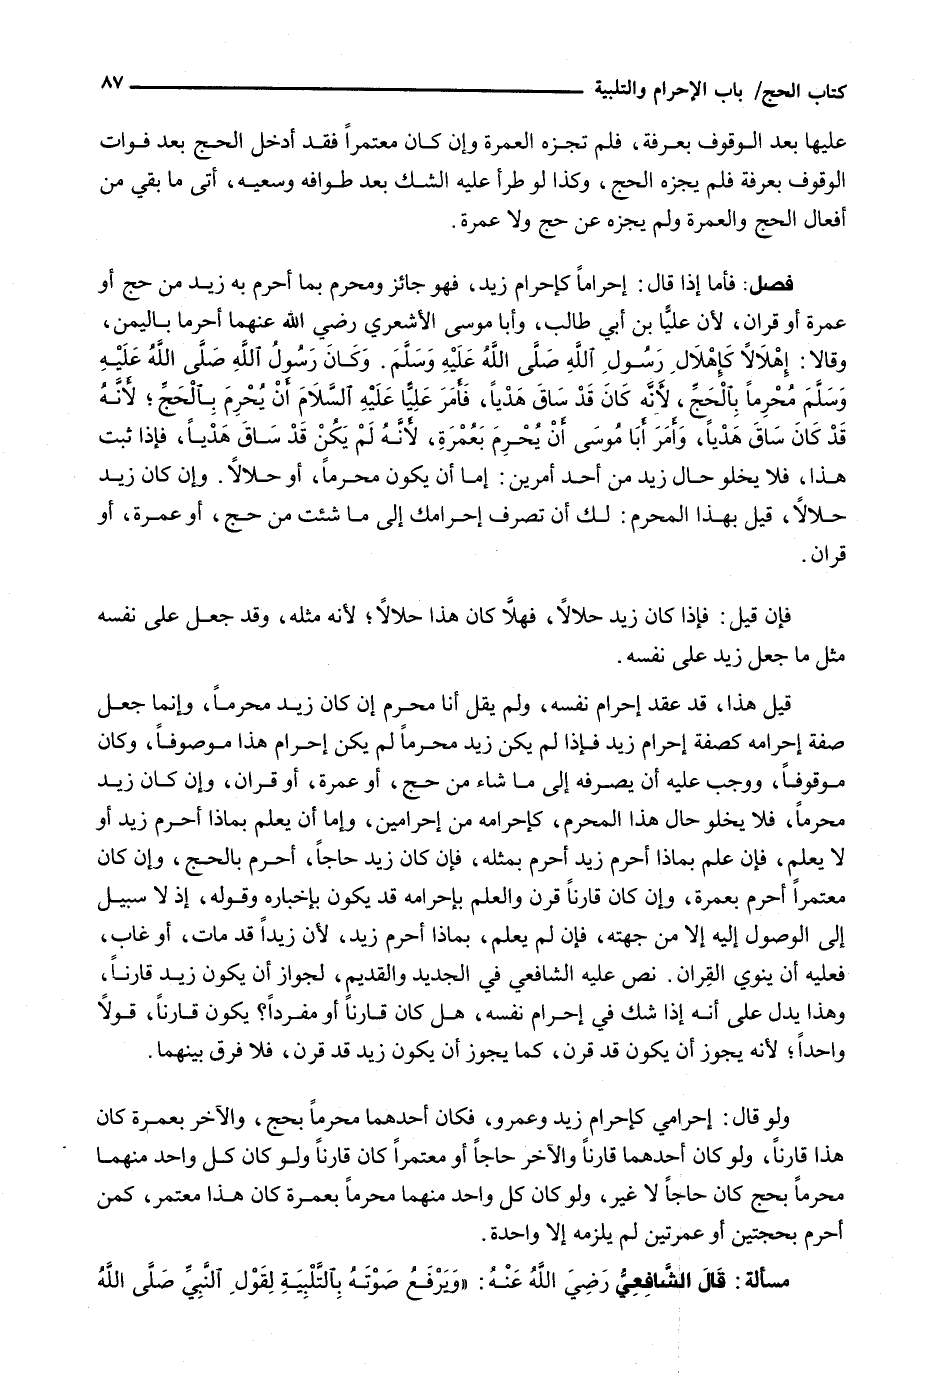 كتاب الحج/ باب الإحرام والتلبية ٨٧
عليها بعد الوقوف بعرفة، فلم تجزه العمرة وإن كان معتمراً فقد أدخل الحج بعد فوات
الوقوف بعرفة فلم يجزه الحج، وكذا لو طرأ عليه الشك بعد طوافه وسعيه، أتى ما بقي من
أفعال الحج والعمرة ولم يجزه عن حج ولا عمرة.
فصل: فأما إذا قال: إحراماً كإحرام زيد، فهو جائز ومحرم بما أحرم به زيد من حج أو
عمرة أو قران، لأن عليًّا بن أبي طالب، وأبا موسى الأشعري رضي الله عنهما أحرما باليمن،
وقالا: إِهْلَالاً كَإِهْلَالِ رَسُولِ ٱللَّهِ صَلَّى اللَّهُ عَلَيْهِ وَسَلَّمَ. وَكَانَ رَسُولُ ٱللَّهِ صَلَّى اللَّهُ عَلَيْهِ
وَسَلَّمَ مُحْرِماً بِٱلْحَجِّ، لأَنَّه كَانَ قَدْ سَاقَ هَدْياً، فَأَمَرَ عَلِيًّا عَلَيْهِ ٱلسَّلَامَ أَنْ يُحْرِمَ بِٱلْحَجِّ؛ لأَنَّهُ
قَدْ كَانَ سَاقَ هَدْياً، وَأَمَرَ أَبَا مُوسَى أَنْ يُحْرِمَ بِعُمْرَةٍ، لأَنَّهُ لَمْ يَكُنْ قَدْ سَاقَ هَدْياً، فإذا ثبت
هذا، فلا يخلو حال زيد من أحد أمرين: إما أن يكون محرماً، أو حلالاً. وإن كان زيد
حلالاً، قيل بهذا المحرم: لك أن تصرف إحرامك إلى ما شئت من حج، أو عمرة، أو
قران.
فإن قيل: فإذا كان زيد حلالاً، فهلَّا كان هذا حلالاً؛ لأنه مثله، وقد جعل على نفسه
مثل ما جعل زيد على نفسه.
قيل هذا، قد عقد إحرام نفسه، ولم يقل أنا محرم إن كان زيد محرماً، وإنما جعل
صفة إحرامه كصفة إحرام زيد فإذا لم يكن زيد محرماً لم يكن إحرام هذا موصوفاً، وكان
موقوفاً، ووجب عليه أن يصرفه إلى ما شاء من حج، أو عمرة، أو قران، وإن كان زيد
محرماً، فلا يخلو حال هذا المحرم، كإحرامه من إحرامين، وإما أن يعلم بماذا أحرم زيد أو
لا يعلم، فإن علم بماذا أحرم زيد أحرم بمثله، فإن كان زيد حاجاً، أحرم بالحج، وإن كان
معتمراً أحرم بعمرة، وإن كان قارناً قرن والعلم بإحرامه قد يكون بإخباره وقوله، إذ لا سبيل
إلى الوصول إليه إلا من جهته، فإن لم يعلم، بماذا أحرم زيد، لأن زيداً قد مات، أو غاب،
فعليه أن ينوي القِران. نص عليه الشافعي في الجديد والقديم، لجواز أن يكون زيد قارناً،
وهذا يدل على أنه إذا شك في إحرام نفسه، هل كان قارناً أو مفرداً؟ يكون قارناً، قولاً
واحداً؛ لأنه يجوز أن يكون قد قرن، كما يجوز أن يكون زيد قد قرن، فلا فرق بينهما.
ولو قال: إحرامي كإحرام زيد وعمرو، فكان أحدهما محرماً بحج، والآخر بعمرة كان
هذا قارناً، ولو كان أحدهما قارناً والآخر حاجاً أو معتمراً كان قارناً ولو كان كل واحد منهما
محرماً بحج كان حاجاً لا غير، ولو كان كل واحد منهما محرماً بعمرة كان هذا معتمر، كمن
أحرم بحجتين أو عمرتين لم يلزمه إلا واحدة.
مسألة: قَالَ الشَّافِعِيُّ رَضِيَ اللَّهُ عَنْهُ: «وَيَرْفَعُ صَوْتَهُ بِٱلتَّلْبِيَةِ لِقَوْلِ ٱلنَّبِيِّ صَلَّى اللَّهُ